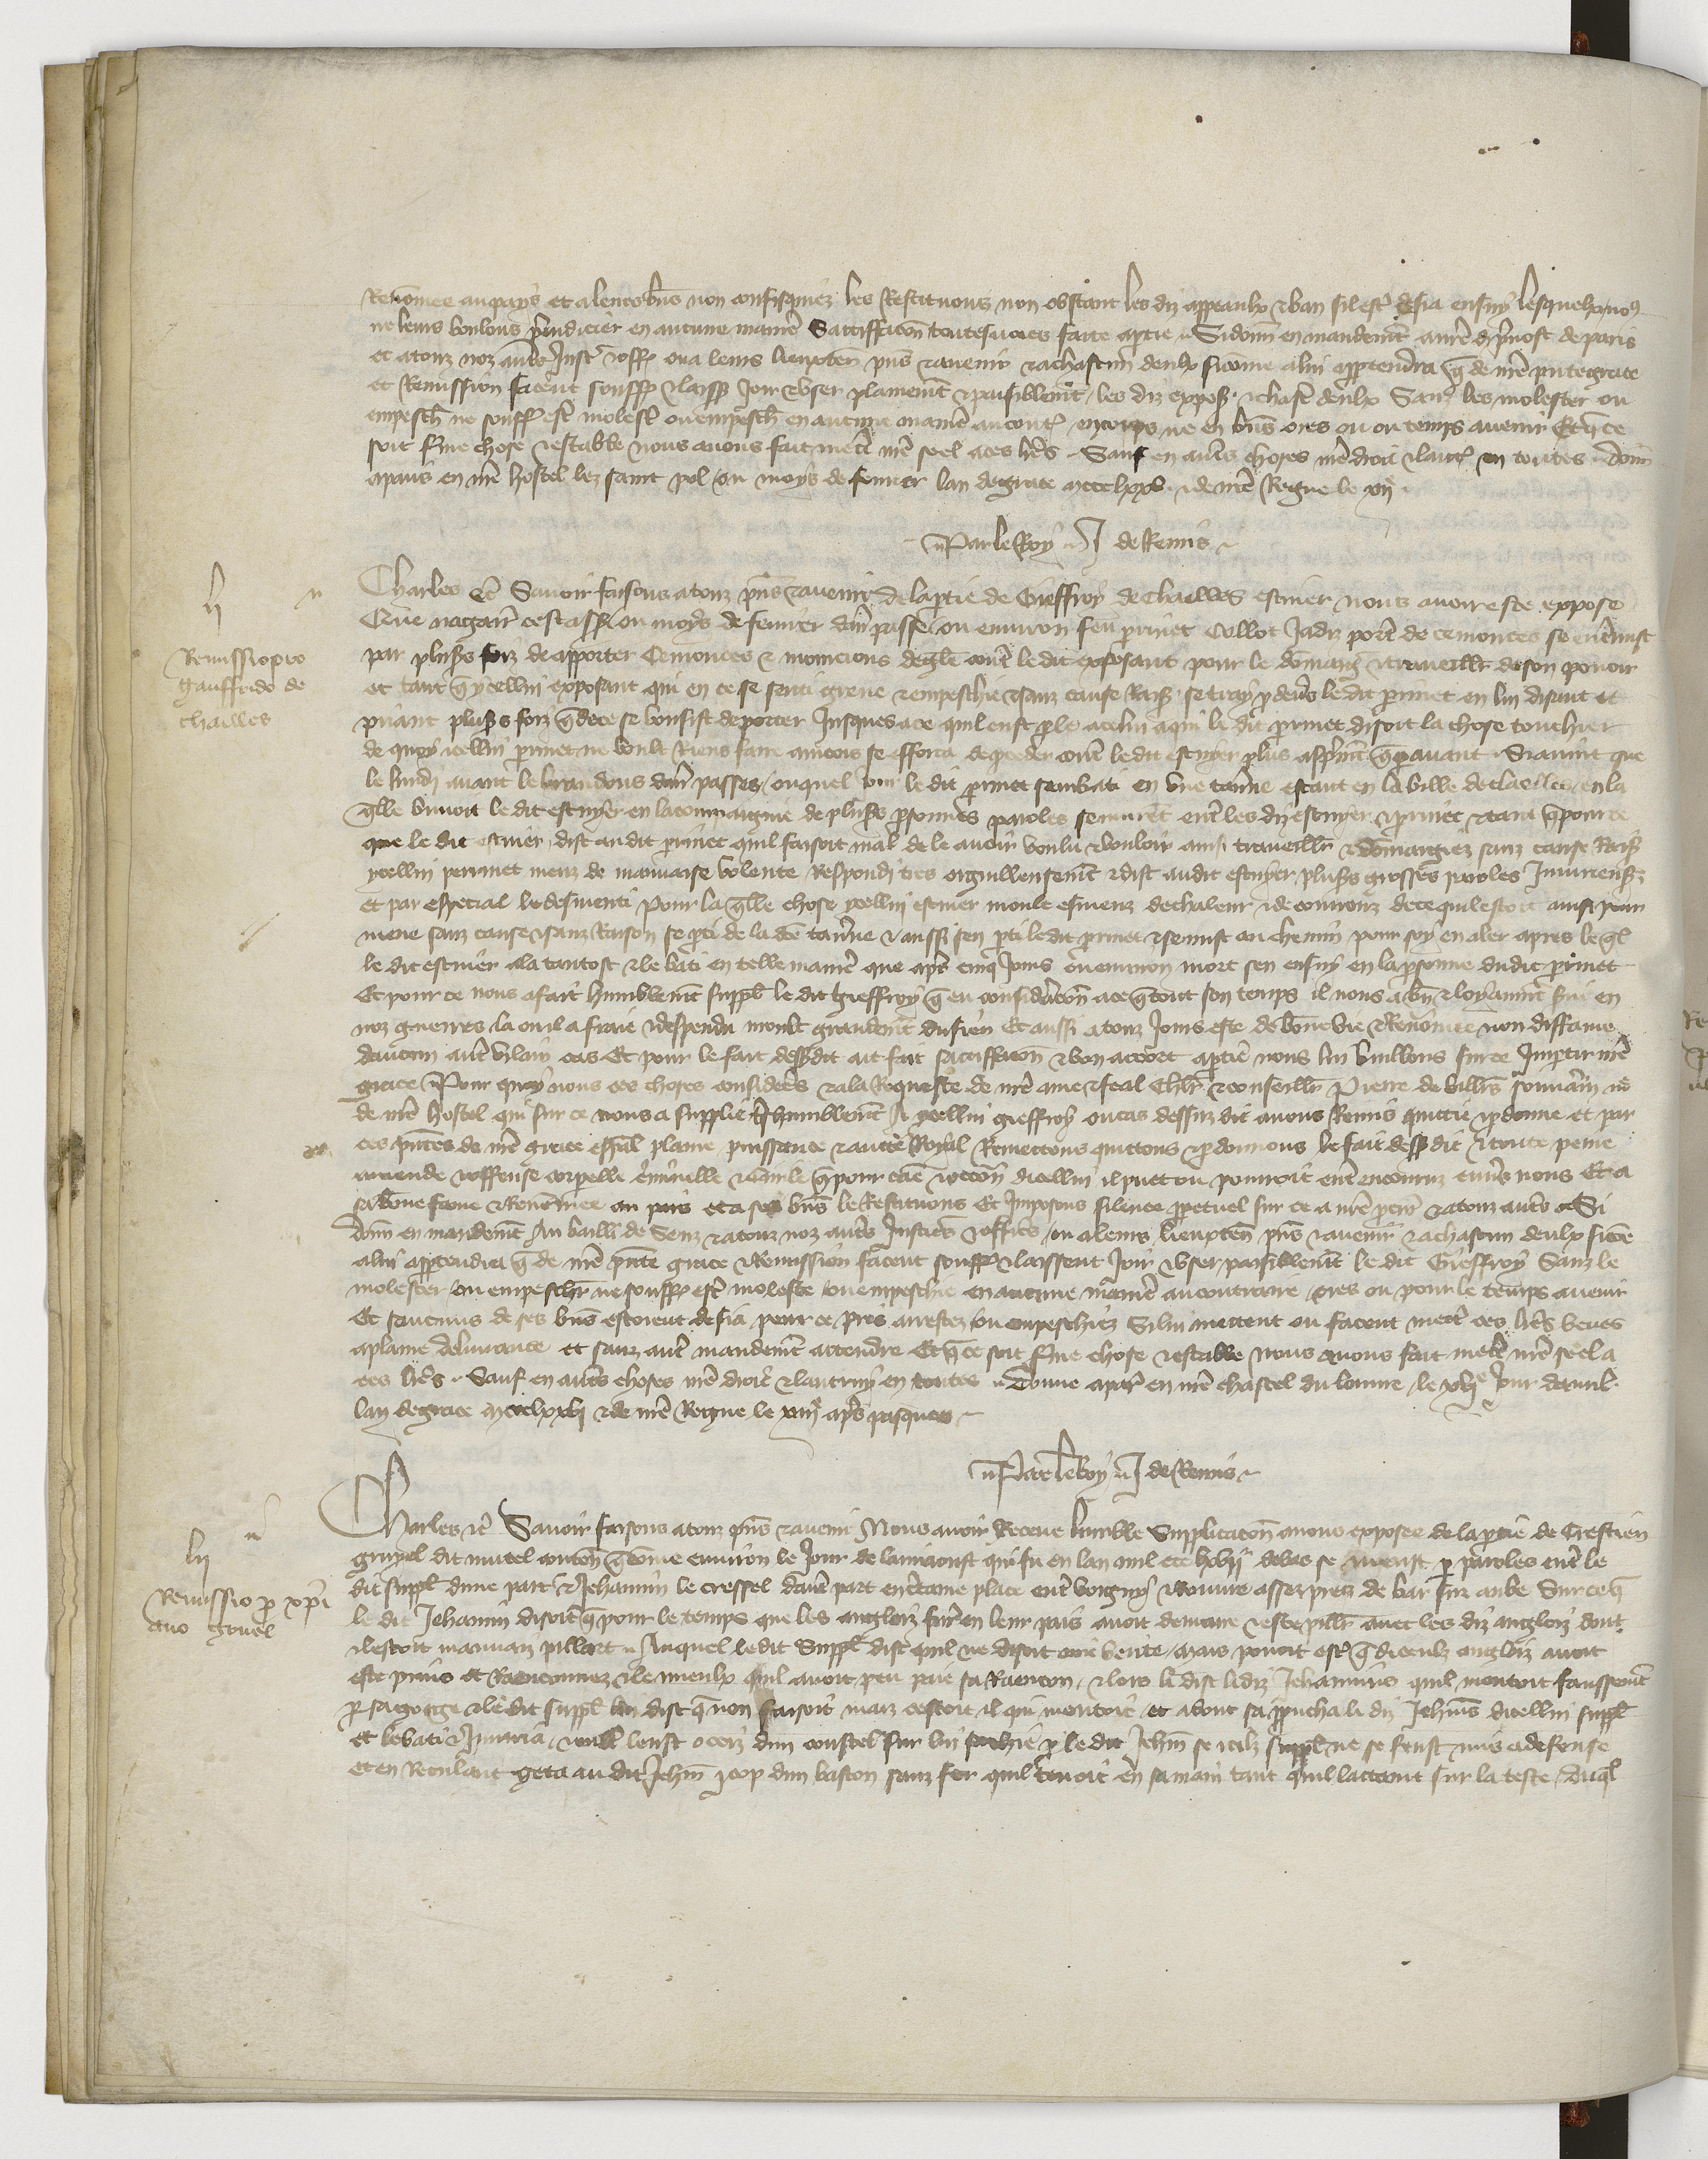 Renomee au pays et a leurs biens non confisquez les restituons non obstant les diz appeaulx & ban sil est desia ensuy lesquelx nous
ne leurs voulons preiudicier en aucune maniere Satisfacion toutesvoies faite a partie Si donnons en mandement a nostre dit prevost de paris
et a touz noz autres Justic & offic ou a leurs lieuxtenans presens & avenir & a chascun deulx si comme a lui appartendra que de nostre presente grace
et Remission facent souffrent & laissent Joir & user plainement & paisiblement les diz exposans & chascun deulx Sanz les molester ou
empescher ne souffrir estre molestez ou empeschez en aucune maniere au contraire en corps ne en biens ores ou ou temps avenir Et que ce
soit ferme chose & estable nous avons fait mettre nostre seel a ces lettres Sauf en autres choses nostre droit & lautrui en toutes Donne
a paris en nostre hostel lez saint pol ou moys de fevrier lan de grace mccclxxv & de nostre Regne le xij
Par le Roy J de Remis
lj
Charles etc Savoir faisons a touz presens & avenir de la partie de Gieffroy de Chailles escuier nous avoir este expose
Remissio pro
Gauffrido de
chailles
Que nagaires cest assavoir ou moys de fevrier derrain passe ou environ feu perrinet Collot Jadiz porteur de cemonces se entremist
par plusieurs foiz de apporter Cemonces & monicions deglise contre le dit exposant pour le dommagier & traveillier de son povoir
et tant que ycellui exposant qui en ce se senti greve & empeschie & sanz cause Raisonnable se tray par devers le dit perrinet en lui disant et
priant plusieurs foiz que de ce se voulsist deporter Jusques a ce quil eust parle a celui a qui le dit perrinet disoit la chose touchier
de quoy icellui perrinet ne voult Riens faire aincois se efforca de proceder contre le dit escuyer plus asprement que paravant Si avint que
le lundi avant les brandons derrain passez ouquel jour le dit perrinet sembati en une taverne estant en la ville de chailles en la
quelle buvoit le dit escuyer en la compaignie de plusieurs personnes paroles se murent entre les diz escuyer & perrinet & tant que pour ce
que le dit escuier dist au dit perrinet quil faisoit mal de le avoir voulu & vouloir ainsi traveillier & dommagier sanz cause Raisonnable
ycellui perrinet meuz de mauvaise volente Respondi tres orguilleusement & dist au dit escuyer plusieurs grosses paroles Iniurieuses
et par especial le desmenti Pour la quelle chose ycellui escuier moult esmeuz de chaleur & de courrouz de ce quil estoit ainsi pour
mene sanz cause & sanz Raison se parti de la dite taverne & aussi sen parti le dit perrinet & se mist ou chemin pour soy en aler apres lequel
le dit escuier ala tantost & le bati en telle maniere que apres cinq Jours ou environ mort sen ensuy en la personne du dit perrinet
Et pour ce nous a fait humblement supplier le dit Gieffroy que eu consideracion a ce que tout son temps il nous a bien & loyaument servi en
noz guerres la ou il a fraie & despendu moult grandement du sien Et aussi a touz Jours este de bonne vie & Renommee non diffame
daucun autre vilain cas Et pour le fait dessusdit ait fait satisfacion & bon accort a partie nous lui vueillons sur ce Impartir nostre
grace Pour quoy nous ces choses considerees & a la Requeste de nostre ame & feal Chevalier & conseillier Pierre de villers souverain maistre
de nostre hostel qui sur ce nous a supplie treshumblement A ycellui gieffroy ou cas dessus dit avons Remis quittie & pardonne et par
ces presentes de nostre grace especial plaine puissance & auctorite Royal Remettons quittons & pardonnons le fait dessusdit & toute peine
amende & offense corporelle criminelle & civile que pour cause & occasion dicellui il puet ou pourroit avoir encouru envers nous Et a
sa bonne fame & Renommee au pais et a ses biens le Restituons Et Imposons silence perpetuel sur ce a nostre procureur & a touz autres Si
donnons en mandement Au bailli de Senz & a touz noz autres Justiciers & officiers ou a leurs lieuxtenans presens & avenir & a chascun deulx si comme
a lui appartendra que de nostre presente grace & Remission facent souffrent & laissent Joir & user paisiblement le dit Gieffroy Sanz le
molester ou empeschier ne souffrir estre moleste ou empeschie en aucune maniere au contraire ores ou pour le temps avenir
Et se aucuns de ses biens estoient desia pour ce pris arrestez ou empeschiez Si lui mettent ou facent mettre ces lettres veues
a plaine delivrance et sanz autre mandement attendre Et que ce soit ferme chose & estable nous avons fait mettre nostre seel a
ces lettres Sauf en autres choses nostre droit & lautruy en toutes Donne a paris en nostre chastel du louvre le xvje Jour davril
lan de grace mccclxxvj & de nostre Regne le xiije apres pasques
Par le Roy J de Remis
lij
Charles etc Savoir faisons a touz presens & avenir Nous avoir Receue humble Supplicacion a nous exposee de la partie de Crestien
Remissio pro xpi
ano gruel
gruyel dit mutel contenant que comme environ le Jour de la miaoust qui fu en lan mil ccc debas se meust par paroles entre le
dit suppliant dune part & Jehannin le cressel dautre part en certaine place entre voigny & Rouvre assez prez de bar sur aube Sur ce que
le dit Jehannin disoit que pour le temps que les anglois furent en leur pais avoit demoure & este pillart avec les diz anglois dont
& estoit mauvaiz pillart Auquel le dit Suppliant dist quil ne disoit mie verite mais povoit estre que diceulx anglois avoit
este prins et Raenconnez & le mieulx quil avoit peu paie sa Raencon & lors li dist le diz Jehannins quil mentoit faussement
par sa gorge & le dit suppliant lui dist que non faisoit maiz cestoit il qui mentoit et adont sapproucha li diz Jehannins dicellui suppliant
et le bati & Iniuria & leust occiz dun coustel sur lui sachie par le dit Jehannin se icilz suppliant ne se feust mis a defense
et en Reculant geta au dit Jehannin 1 cop dun baston sanz fer quil tenoit en sa main tant quil lattaint sur la teste duquel